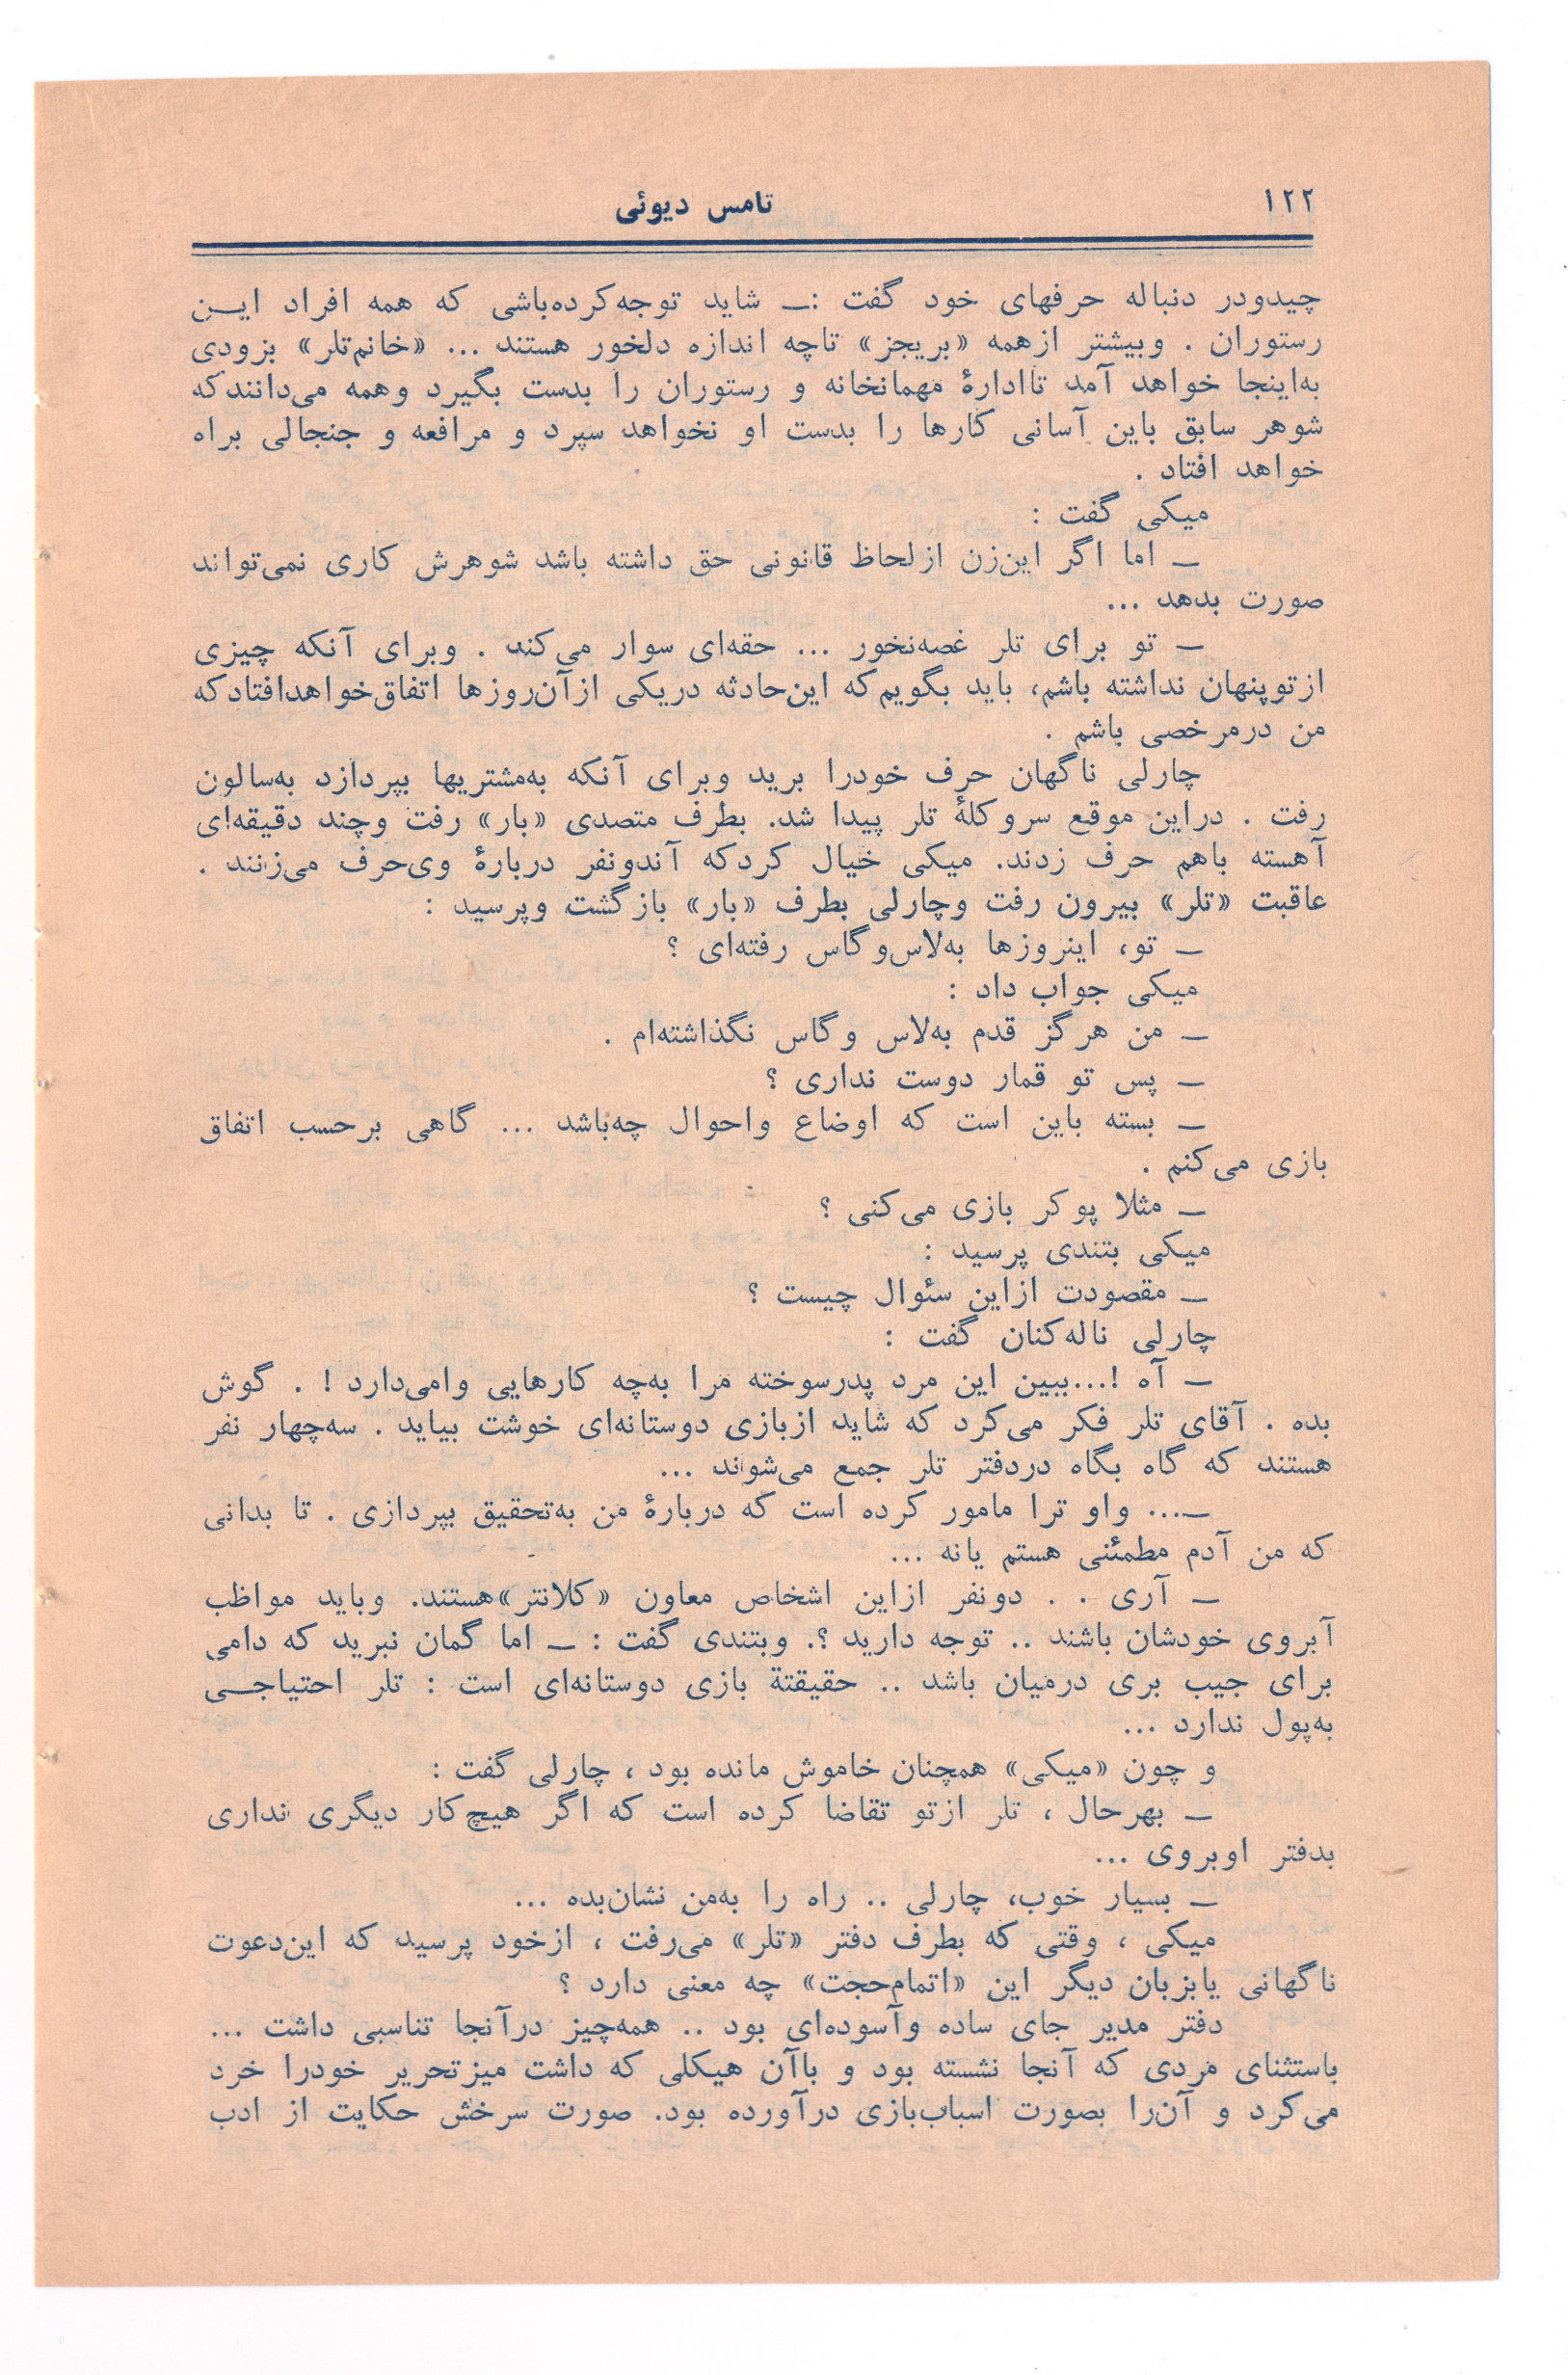 ۱۲۲
تامس دیوئی
چیدودر دنباله حرفهای خود گفت :ـ شاید توجه‌کرده‌باشی که همه افراد ایـن
رستوران . وبیشتر ازهمه «بریجز» تاچه اندازه دلخور هستند ... «خانم‌تلر» بزودی
به‌اینجا خواهد آمد تاادارهٔ مهمانخانه و رستوران را بدست بگیرد وهمه می‌دانندکه
شوهر سابق باین آسانی کارها را بدست او نخواهد سپرد و مرافعه و جنجالی براه
خواهد افتاد .
میکی گفت :
ـ اما اگر این‌زن ازلحاظ قانونی حق داشته باشد شوهرش کاری نمی‌تواند
صورت بدهد ...
ـ تو برای تلر غصه‌نخور ... حقه‌ای سوار می‌کند . وبرای آنکه چیزی
ازتوپنهان نداشته باشم، باید بگویم‌که این‌حادثه دریکی ازآن‌روزها اتفاق‌خواهدافتادکه
من درمرخصی باشم .
چارلی ناگهان حرف خودرا برید وبرای آنکه به‌مشتریها بپردازد به‌سالون
رفت . دراین موقع سروکلهٔ تلر پیدا شد. بطرف متصدی «بار» رفت وچند دقیقه‌ای
آهسته باهم حرف زدند. میکی خیال کردکه آندونفر دربارهٔ وی‌حرف می‌زنند .
عاقبت «تلر» بیرون رفت وچارلی بطرف «بار» بازگشت وپرسید :
ـ تو، اینروزها به‌لاس‌وگاس رفته‌ای ؟
میکی جواب داد :
ـ من هرگز قدم به‌لاس وگاس نگذاشته‌ام .
ـ پس تو قمار دوست نداری ؟
ـ بسته باین است که اوضاع واحوال چه‌باشد ... گاهی برحسب اتفاق
بازی می‌کنم .
ـ مثلا پوکر بازی می‌کنی ؟
میکی بتندی پرسید :
ـ مقصودت ازاین سئوال چیست ؟
چارلی ناله‌کنان گفت :
ـ آه !...ببین این مرد پدرسوخته مرا به‌چه کارهایی وامی‌دارد ! . گوش
بده . آقای تلر فکر می‌کرد که شاید ازبازی دوستانه‌ای خوشت بیاید . سه‌چهار نفر
هستند که گاه بگاه دردفتر تلر جمع می‌شوند ...
ـ... واو ترا مامور کرده است که دربارهٔ من به‌تحقیق بپردازی . تا بدانی
که من آدم مطمئنی هستم یانه ...
ـ آری . . دونفر ازاین اشخاص معاون «کلانتر»هستند. وباید مواظب
آبروی خودشان باشند .. توجه دارید ؟. وبتندی گفت : ـ اما گمان نبرید که دامی
برای جیب بری درمیان باشد .. حقیقتة بازی دوستانه‌ای است : تلر احتیاجـی
به‌پول ندارد ...
و چون «میکی» همچنان خاموش مانده بود ، چارلی گفت :
ـ بهرحال ، تلر ازتو تقاضا کرده است که اگر هیچ‌کار دیگری نداری
بدفتر اوبروی ...
ـ بسیار خوب، چارلی .. راه را به‌من نشان‌بده ...
میکی ، وقتی که بطرف دفتر «تلر» می‌رفت ، ازخود پرسید که این‌دعوت
ناگهانی یابزبان دیگر این «اتمام‌حجت» چه معنی دارد ؟
دفتر مدیر جای ساده وآسوده‌ای بود .. همه‌چیز درآنجا تناسبی داشت ...
باستثنای مردی که آنجا نشسته بود و باآن هیکلی که داشت میزتحریر خودرا خرد
می‌کرد و آن‌را بصورت اسباب‌بازی درآورده بود. صورت سرخش حکایت از ادب